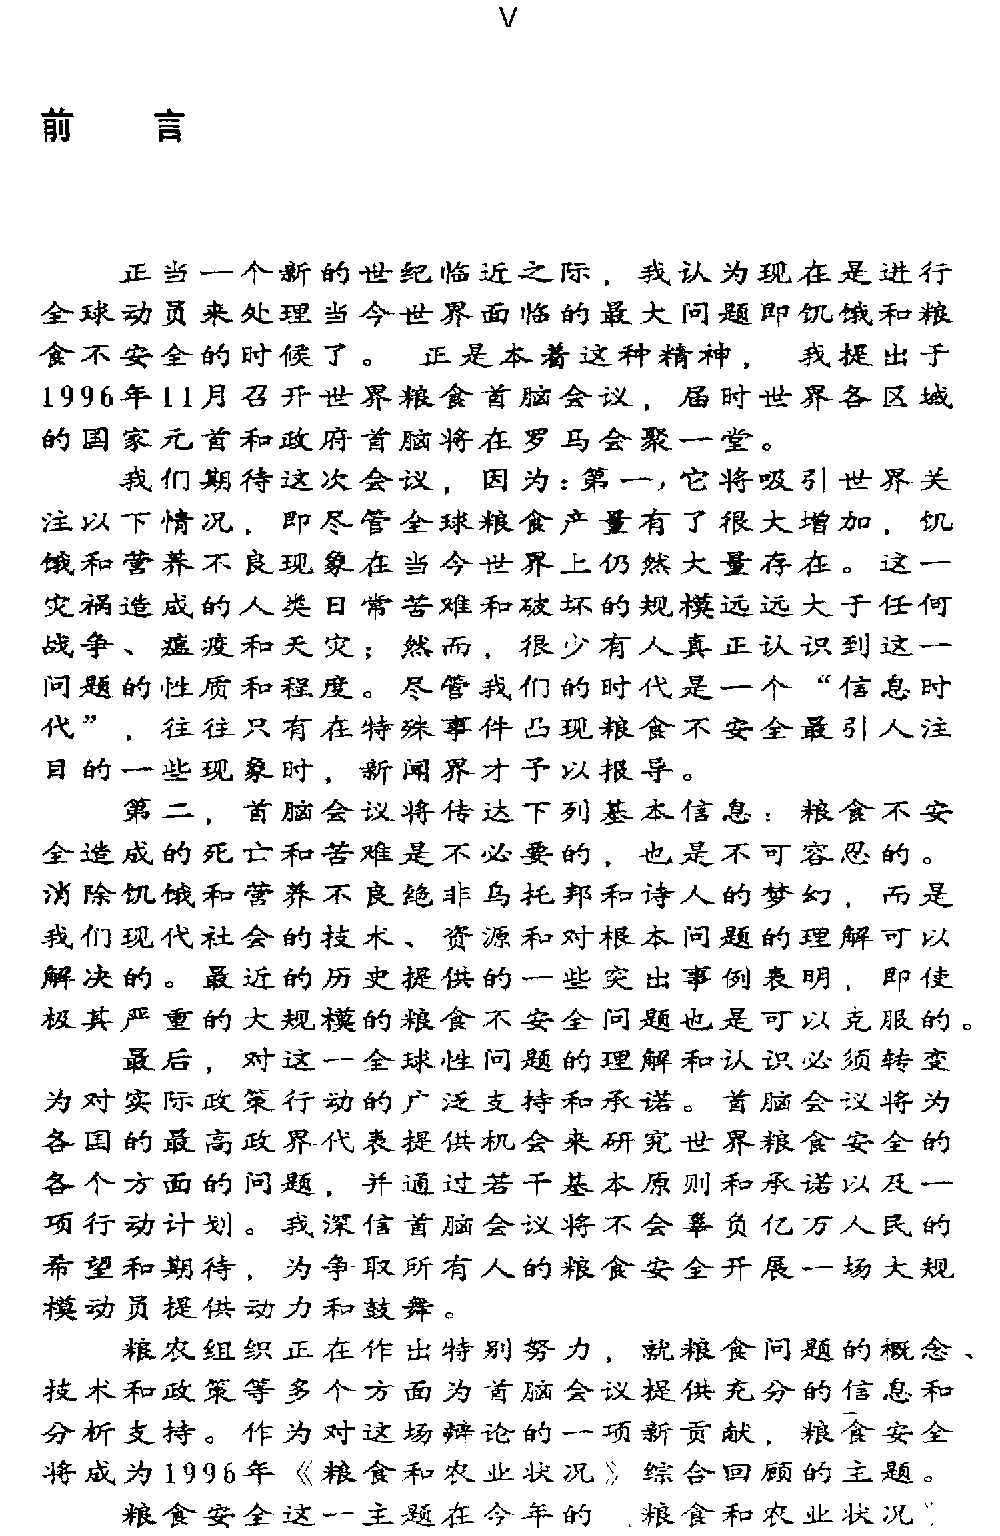 V
前 言
正当一个新的世纪临近之际，我认为现在是进行
全球动员来处理当今世界面临的最大问题即饥饿和粮
食不安全的时候了。 正是本着这种精神， 我提出于
1996年11月召开世界粮食首脑会议，届时世界各区域
的国家元首和政府首脑将在罗马会聚一堂。
我们期待这次会议，因为：第一，它将吸引世界关
注以下情况，即尽管全球粮食产量有了很大增加，饥
饿和营养不良现象在当今世界上仍然大量存在。这一
灾祸造成的人类日常苦难和破坏的规模远远大于任何
战争、瘟疫和天灾；然而，很少有人真正认识到这一
问题的性质和程度。尽管我们的时代是一个“信息时
代”，往往只有在特殊事件凸现粮食不安全最引人注
目的一些现象时，新闻界才予以报导。
第二，首脑会议将传达下列基本信息：粮食不安
全造成的死亡和苦难是不必要的，也是不可容忍的。
消除饥饿和营养不良绝非乌托邦和诗人的梦幻，而是
我们现代社会的技术、资源和对根本问题的理解可以
解决的。最近的历史提供的一些突出事例表明，即使
极其严重的大规模的粮食不安全问题也是可以克服的。
最后，对这一全球性问题的理解和认识必须转变
为对实际政策行动的广泛支持和承诺。首脑会议将为
各国的最高政界代表提供机会来研究世界粮食安全的
各个方面的问题，并通过若干基本原则和承诺以及一
项行动计划。我深信首脑会议将不会辜负亿万人民的
希望和期待，为争取所有人的粮食安全开展一场大规
模动员提供动力和鼓舞。
粮农组织正在作出特别努力，就粮食问题的概念、
技术和政策等多个方面为首脑会议提供充分的信息和
分析支持。作为对这场辩论的一项新贡献，粮食安全
将成为1996年《粮食和农业状况》综合回顾的主题。
粮食安全这一主题在今年的 粮食和农业状况